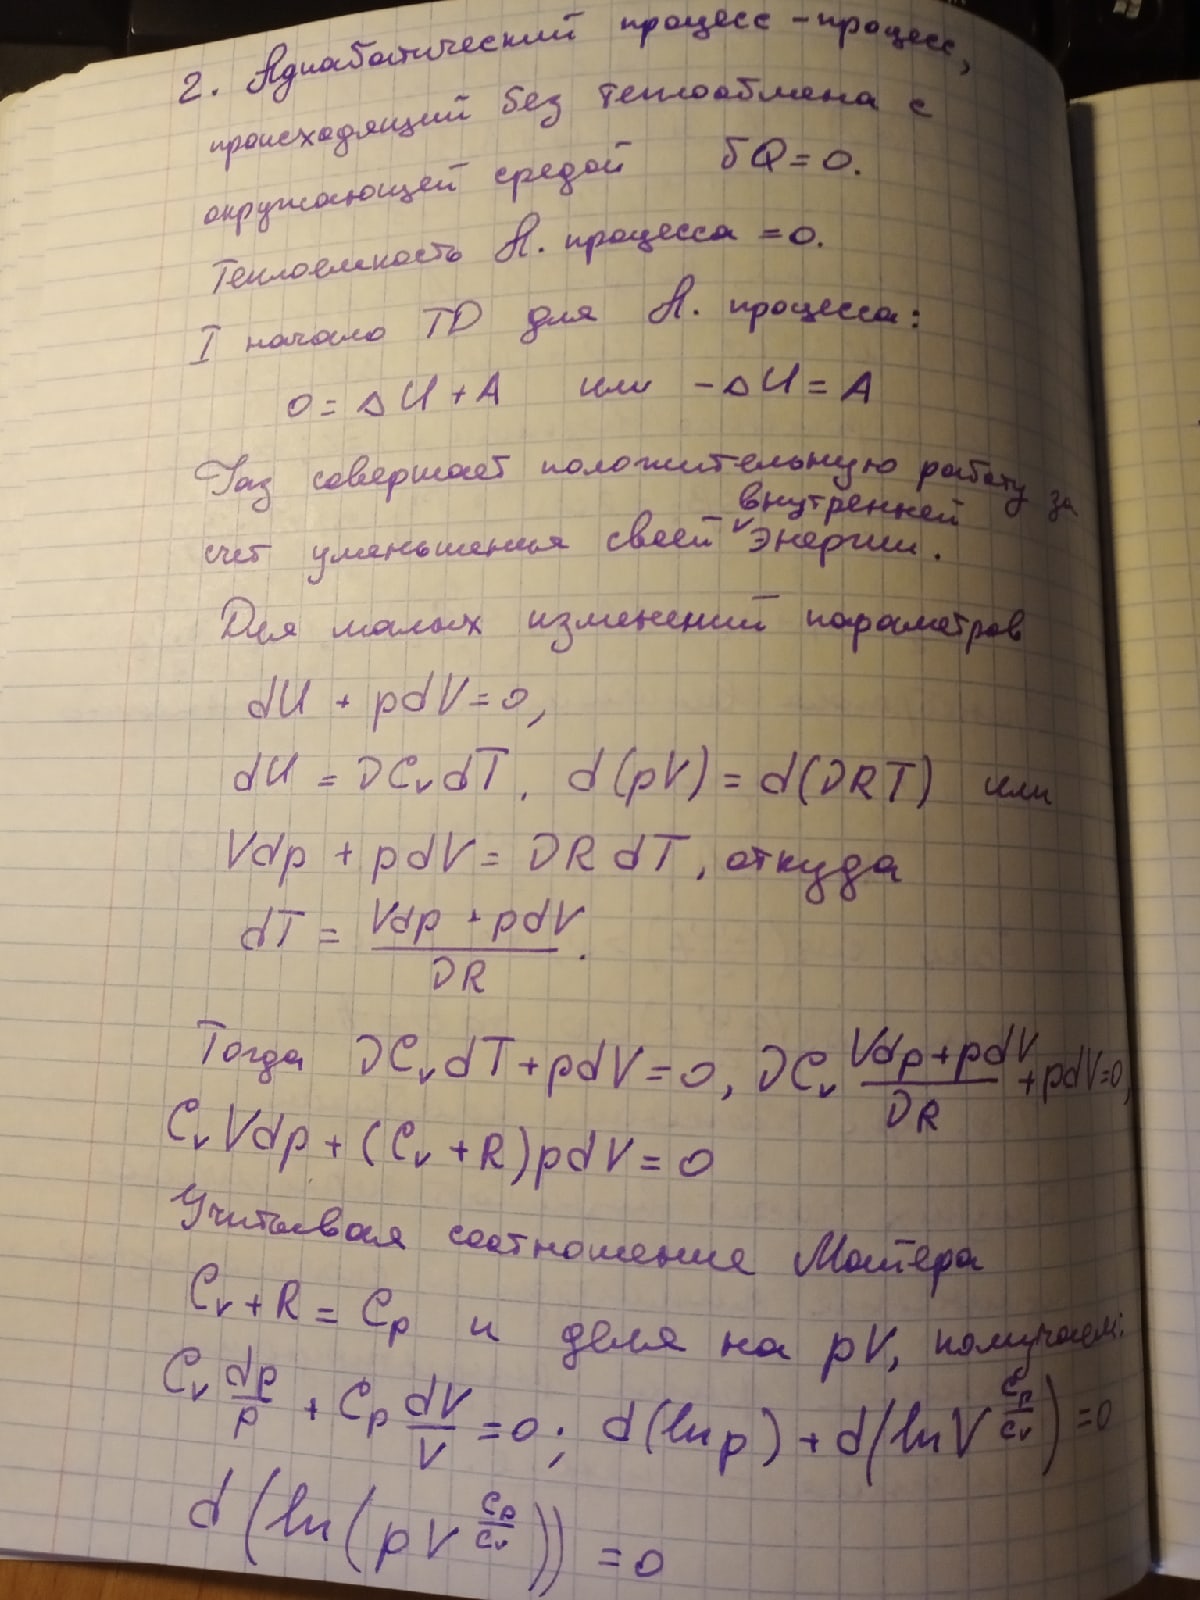 2. Адиабатический процесс – процесс,
происходящий без теплообмена с
окружающей средой δQ = 0.
Теплоемкость А. процесса = 0.
I начало ТD для А. процесса:
0 = ΔU + A или -ΔU = A
Газ совершает положительную работу за
внутренней
счет уменьшения своей ˅ энергии.
Для малых изменений параметров
dU + pdV = 0,
dU = νCᵥdT, d(pV) = d(νRT) или
Vdp + pdV = νR dT, откуда
dT = (Vdp + pdV)/(νR).
Тогда νCᵥdT + pdV = 0, νCᵥ (Vdp + pdV)/(νR) + pdV = 0,
CᵥVdp + (Cᵥ + R)pdV = 0
Учитывая соотношение Майера
Cᵥ + R = Cₚ и деля на pV, получаем:
Cᵥ dp/p + Cₚ dV/V = 0; d(ln p) + d(ln V^(Cₚ/Cᵥ)) = 0
d(ln(pV^(Cₚ/Cᵥ))) = 0